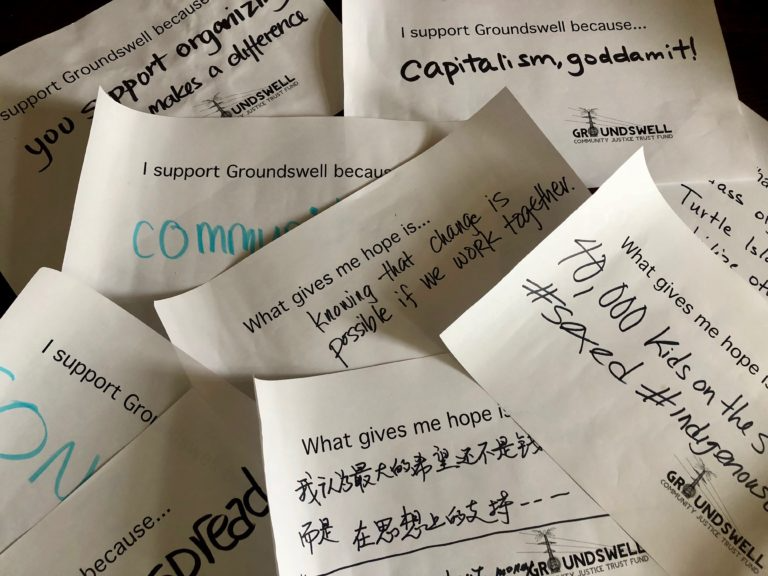 support Groundswell because...
you support organizing
makes a difference
GROUNDSWELL
COMMUNITY JUSTICE TRUST FUND
I support Groundswell because...
Capitalism, goddamit!
GROUNDSWELL
COMMUNITY JUSTICE TRUST FUND
I support Groundswell because
What gives me hope is...
Knowing that change is
possible if we work together.
Turtle
What gives me hope is
40,000 kids on the
#sexed #indigenous
GROUNDSWELL
COMMUNITY JUSTICE TRUST FUND
I support
because...
What gives me hope is
我认为最大的希望还不是钱
而是 在思想上的支持----
money
GROUNDSWELL
COMMUNITY JUSTICE TRUST FUND